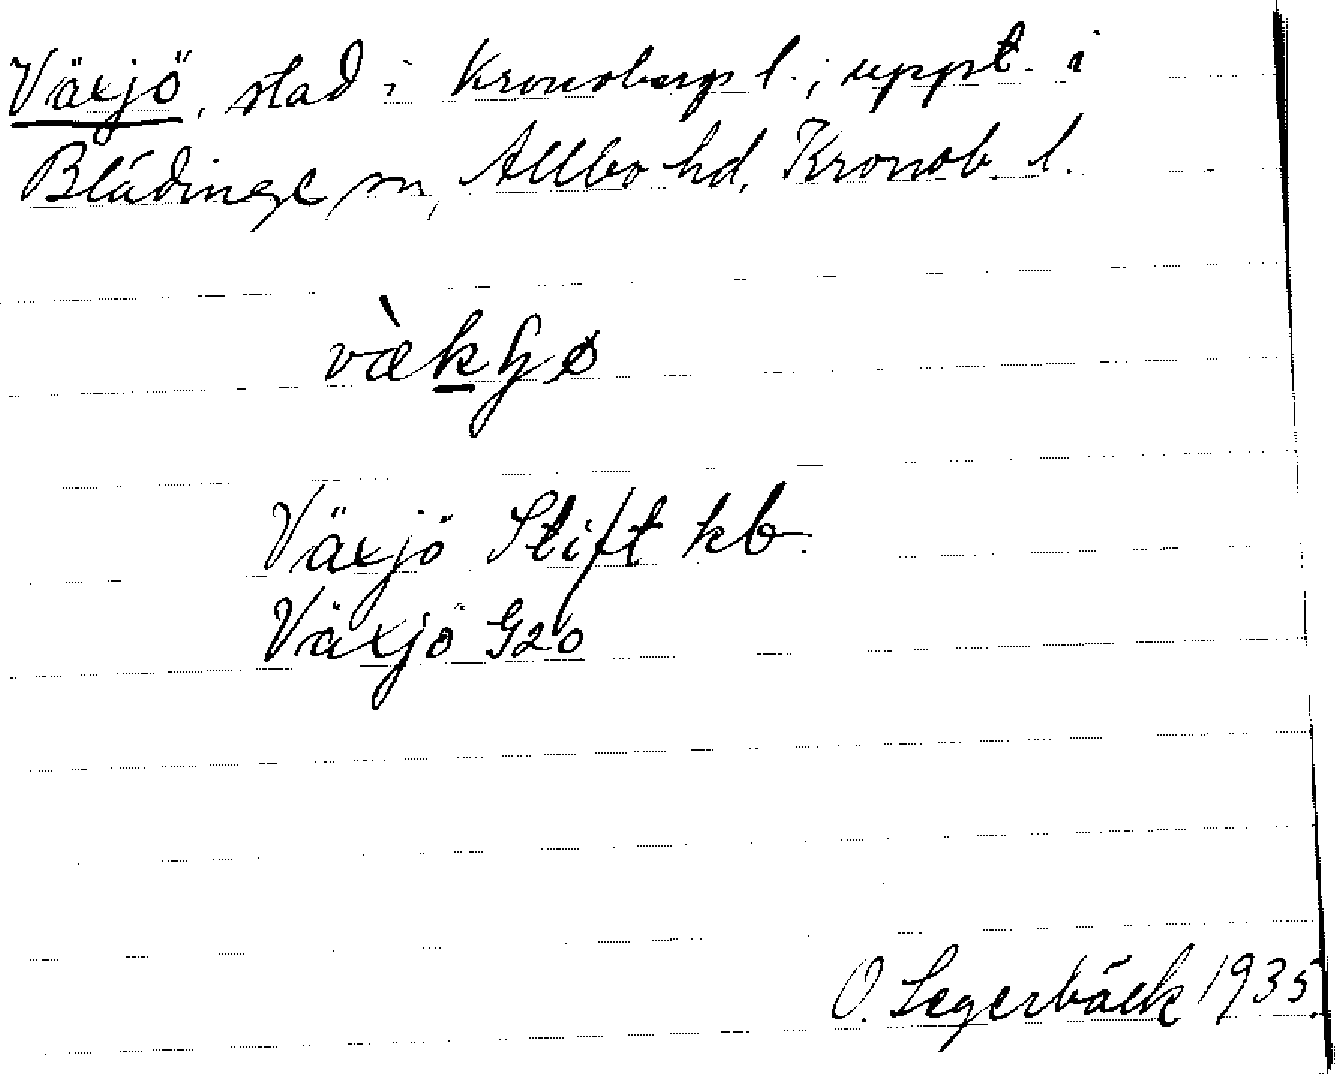 Växjö, stad i Kronobergs l.; uppt. i
Blädinge sn, Allbo hd, Kronob. l.
Växjö Stift kb.
Växjö G20
O. Segerbäck 1935.